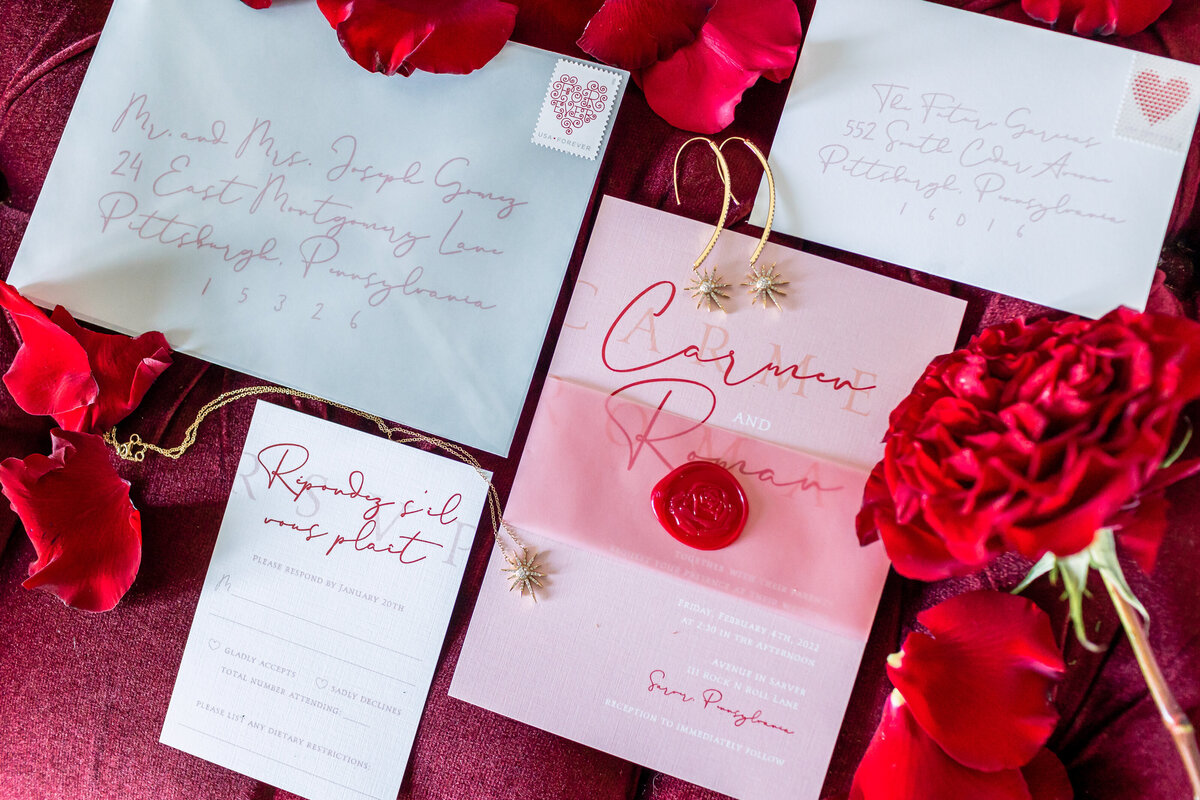 Mr. and Mrs. Joseph Gomez
24 East Montgomery Lane
Pittsburgh, Pennsylvania
15326
FOREVER
USA FOREVER
The Future Garzas
552 South Cedar Avenue
Pittsburgh, Pennsylvania
16016
CARME
Carmen
AND
ROMA
Roman
TOGETHER WITH THEIR PARENTS
FRIDAY, FEBRUARY 4TH, 2022
AT 2:30 IN THE AFTERNOON
AVENUE IN SARVER
111 ROCK N ROLL LANE
Sarver, Pennsylvania
RECEPTION TO IMMEDIATELY FOLLOW
RSVP
Répondez s'il
vous plaît
PLEASE RESPOND BY JANUARY 20TH
M
GLADLY ACCEPTS
SADLY DECLINES
TOTAL NUMBER ATTENDING:
PLEASE LIST ANY DIETARY RESTRICTIONS